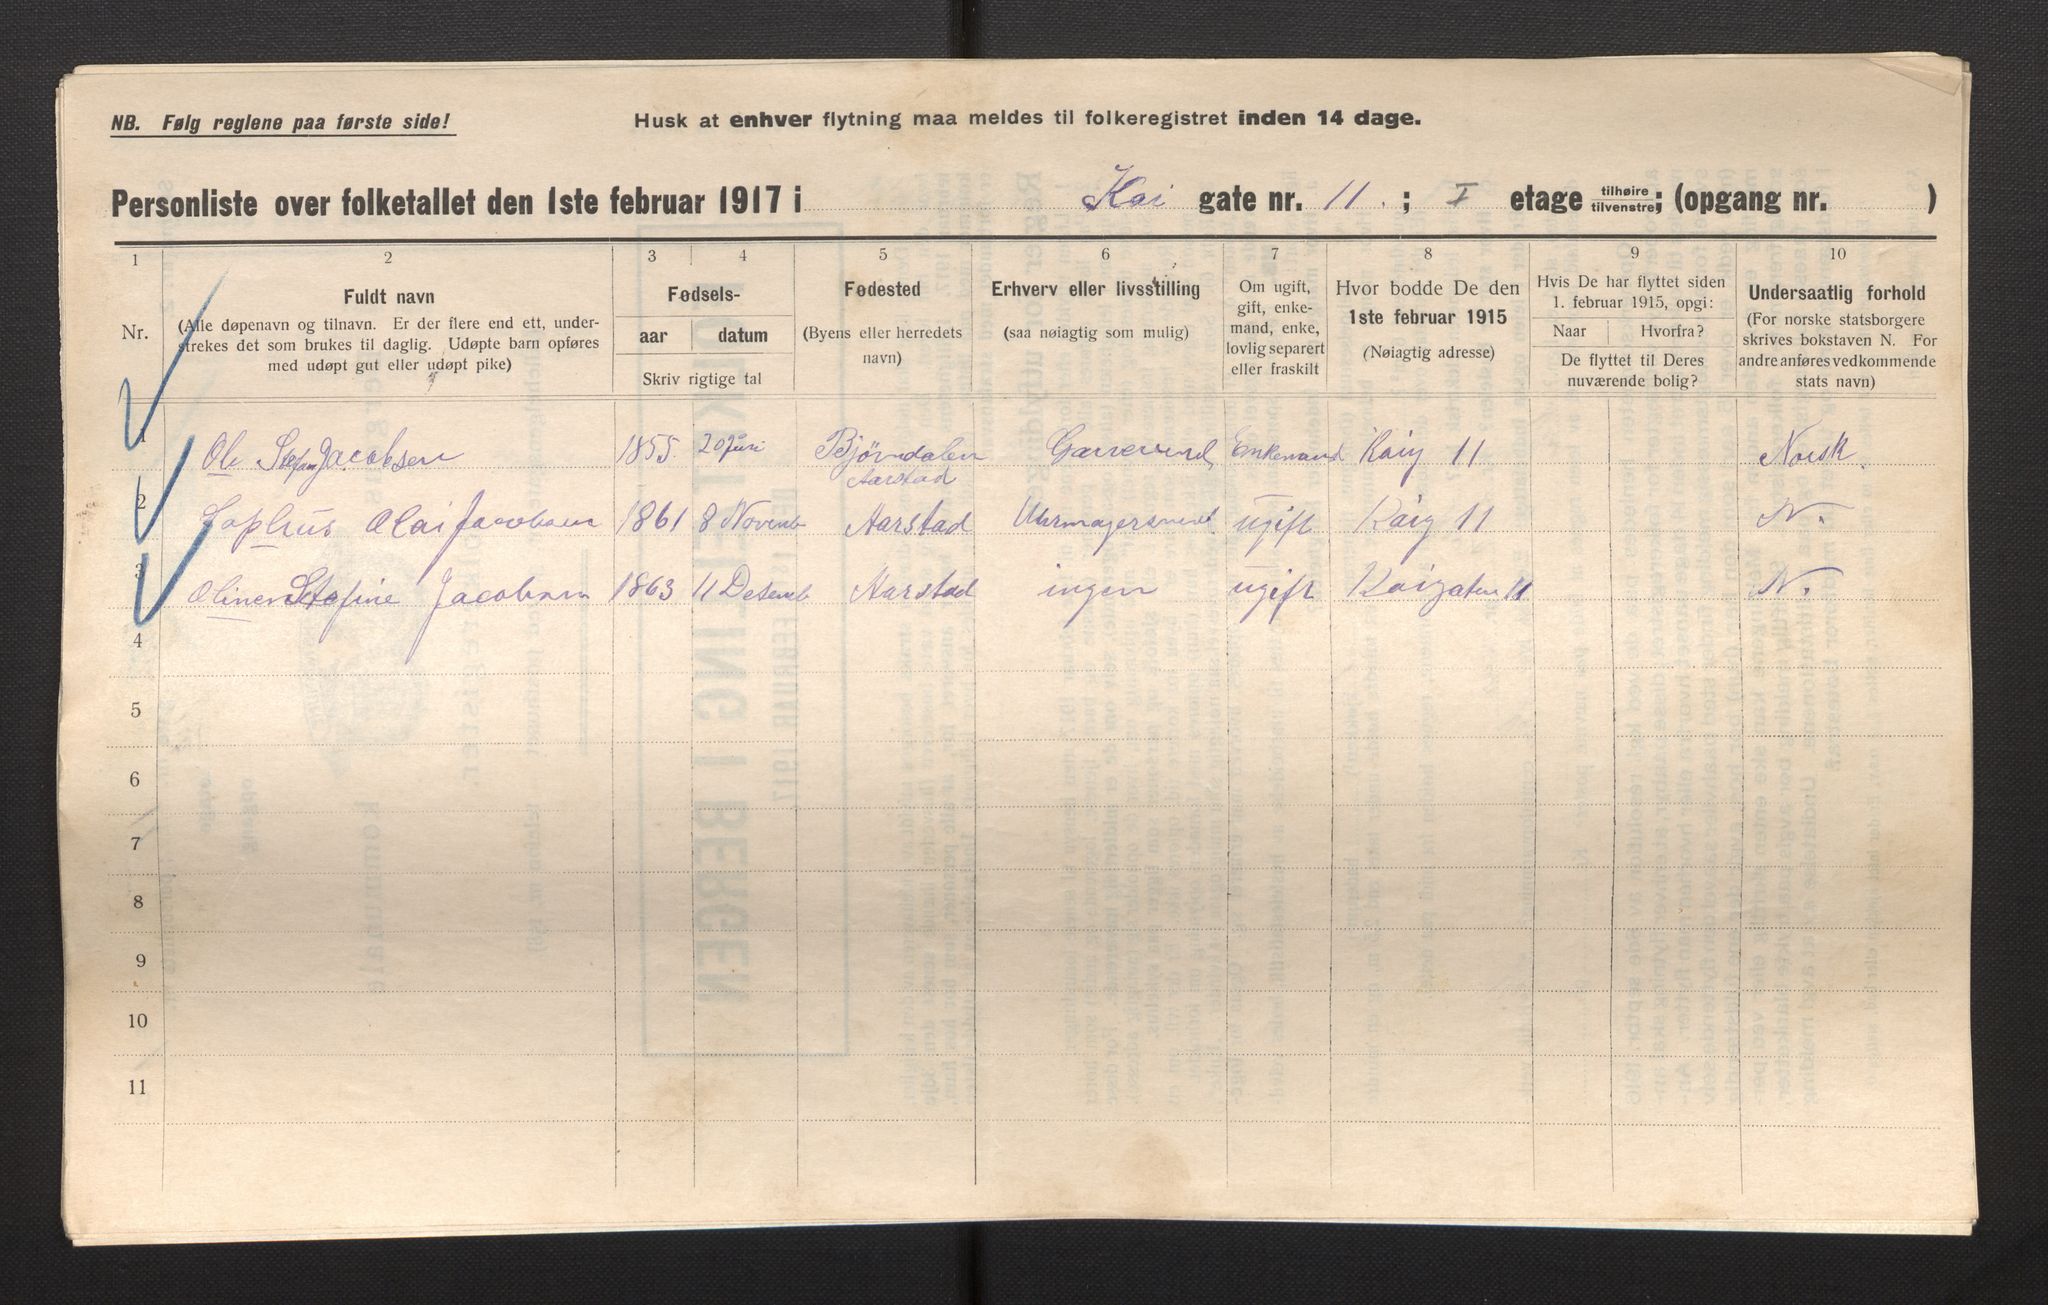 NB. Følg reglene paa første side!
Husk at enhver flytning maa meldes til folkeregistret inden 14 dage.
Personliste over folketallet den 1ste februar 1917 i Kai gate nr. 11. ; I etage tilhøire tilvenstre; (opgang nr. )
1 2 3 4 5 6 7 8 9 10
Nr.
Fuldt navn
(Alle døpenavn og tilnavn. Er der flere end ett, under-
strekes det som brukes til daglig. Udøpte barn opføres
med udøpt gut eller udøpt pike)
Fødsels-
aar datum
Skriv rigtige tal
Fødested
(Byens eller herredets
navn)
Erhverv eller livsstilling
(saa nøiagtig som mulig)
Om ugift,
gift, enke-
mand, enke,
lovlig separert
eller fraskilt
Hvor bodde De den
1ste februar 1915
(Nøiagtig adresse)
Hvis De har flyttet siden
1. februar 1915, opgi:
Naar Hvorfra?
De flyttet til Deres
nuværende bolig?
Undersaatlig forhold
(For norske statsborgere
skrives bokstaven N. For
andre anføres vedkommende
stats navn)
1 Ole Stefan Jacobsen 1855. 20 Juni Bjørndalen Aarstad Enkemand Kaig 11 Norsk.
2 Sophus Olai Jacobsen 1861 8 Novemb Aarstad Uhrmagersvend ugift Kaig 11 N.
3 Oline Stefine Jacobsen 1863 11 Desemb Aarstad ingen ugift Kaigaten 11 N.
4
5
6
7
8
9
10
11